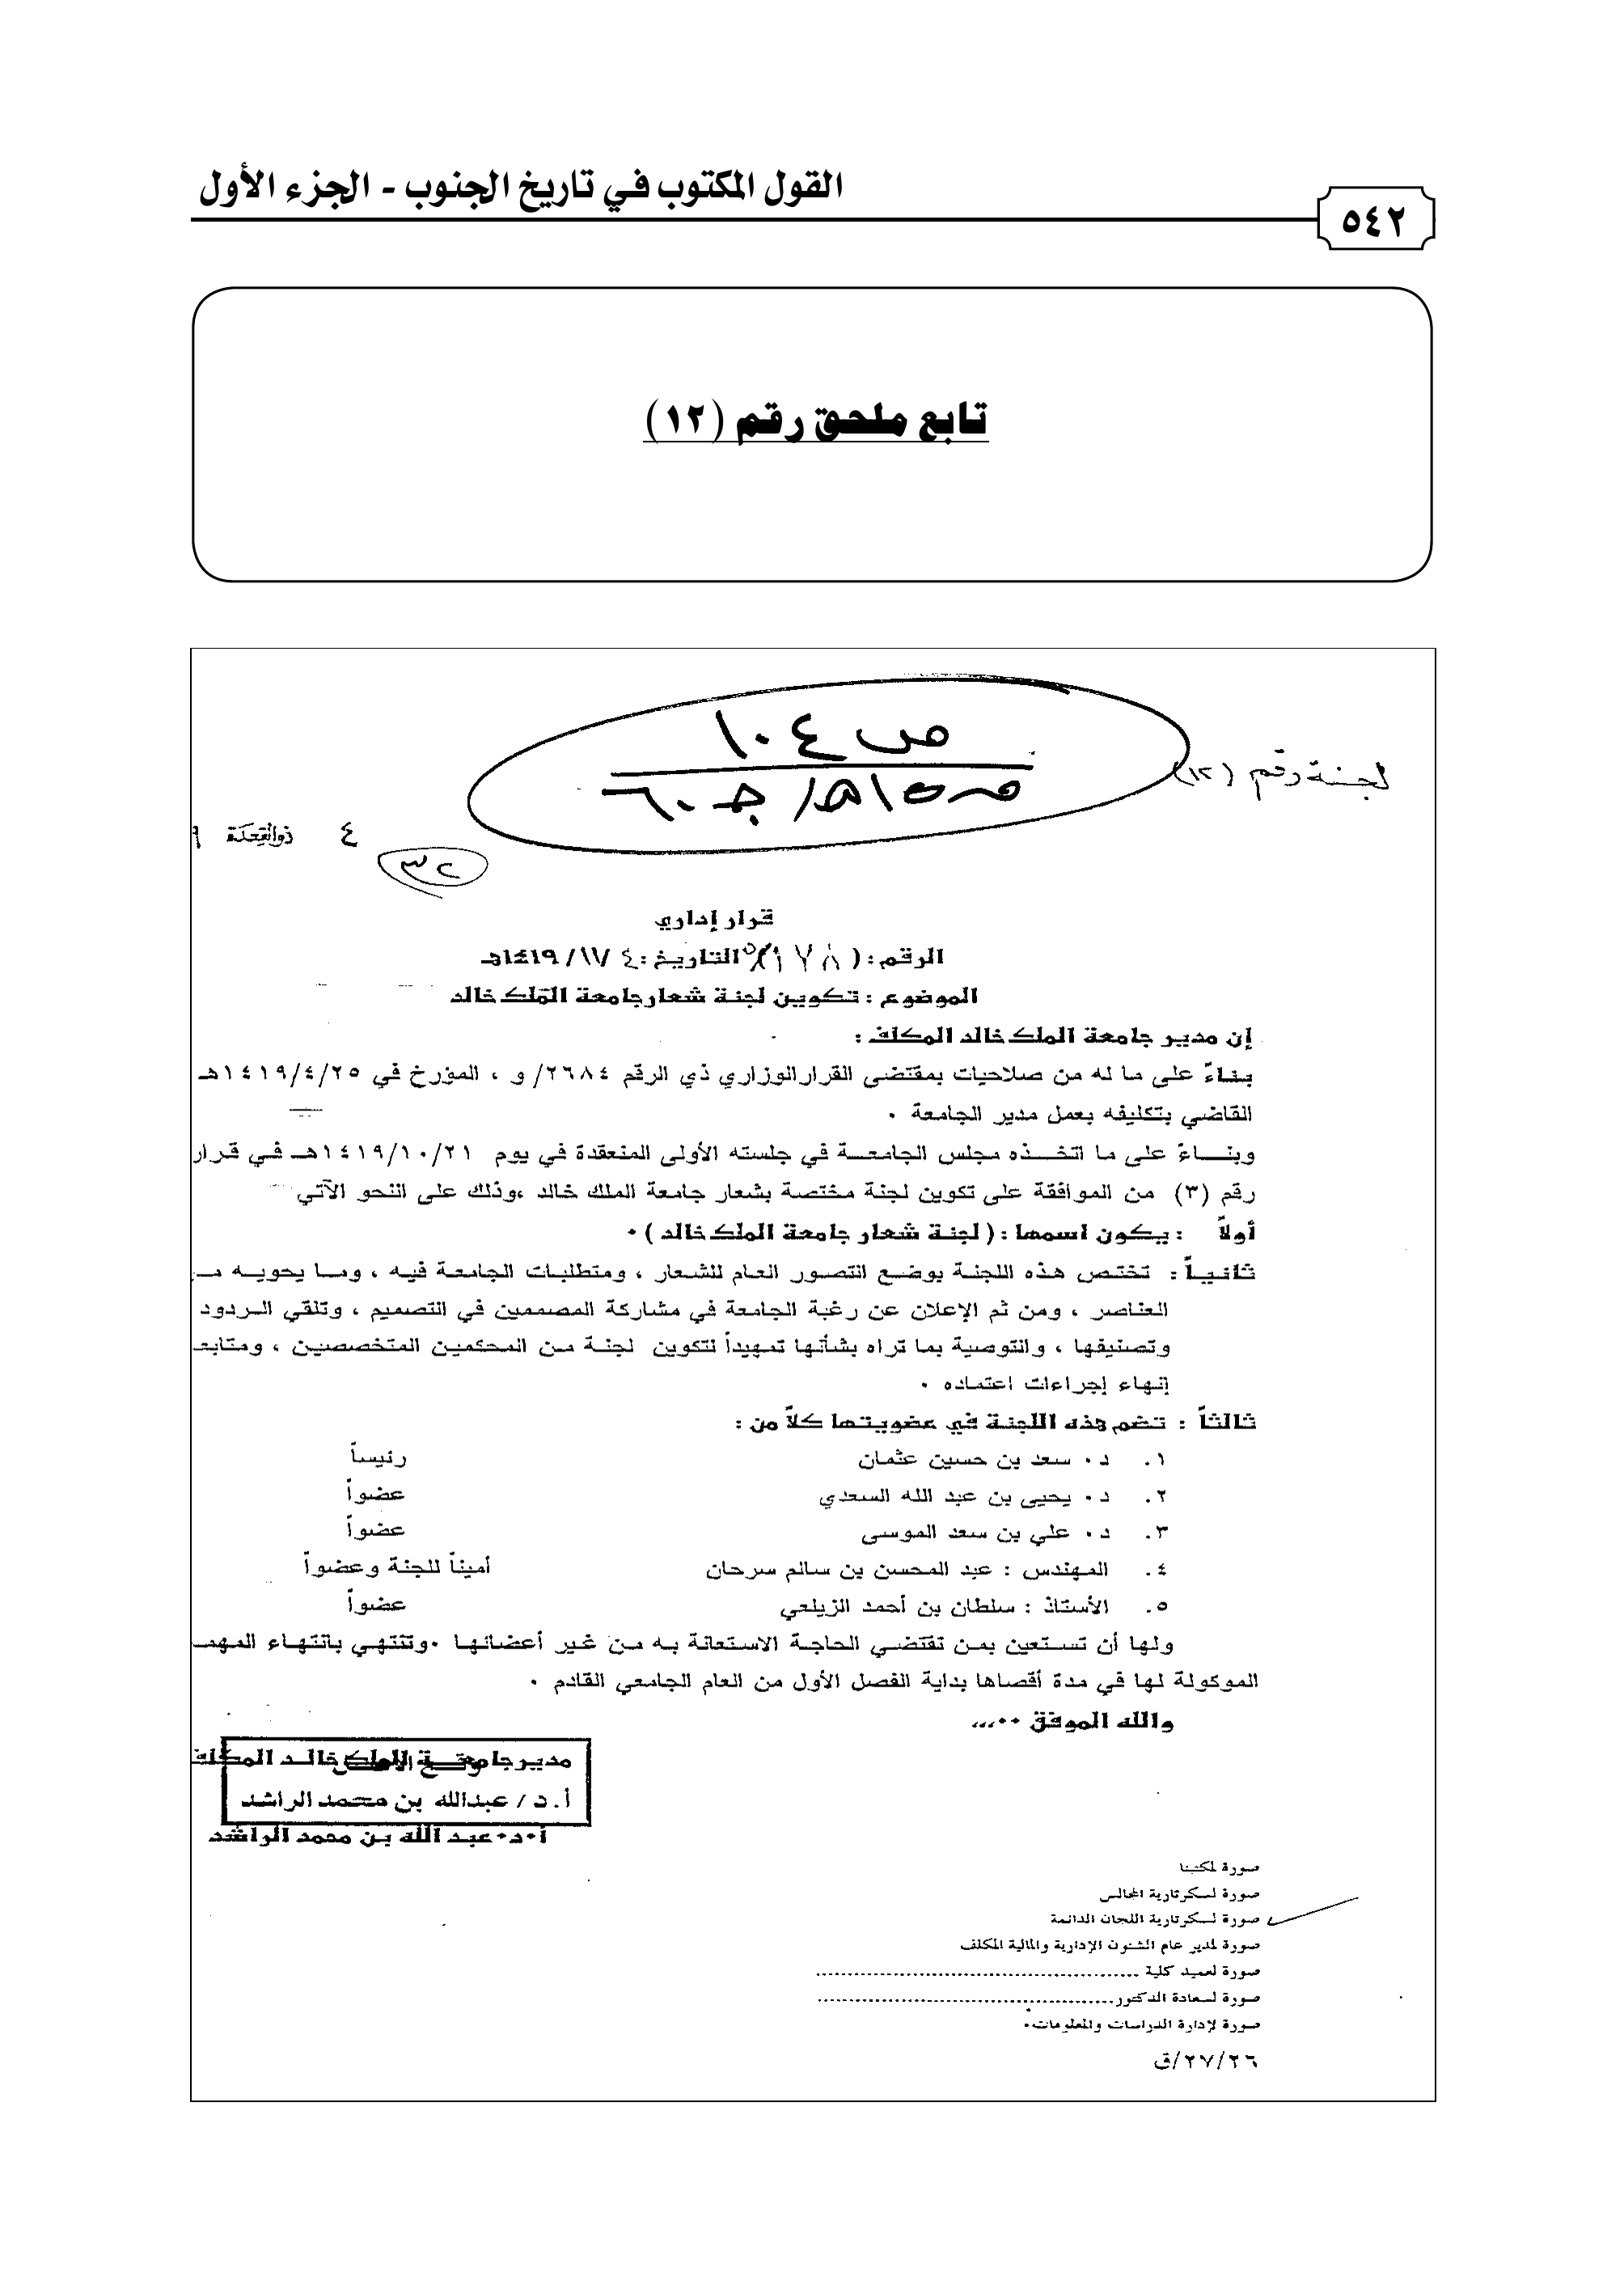 القول المكتوب في تاريخ الجنوب - الجزء الأول
٥٤٢
تابع ملحق رقم (١٢)
ص ١٠٤
لجنة رقم (١٢)
٤ ذوالقعدة
٣٢
قرار إداري
الرقم : ( التاريخ : ٤ /١١/ ١٤١٩هـ
الموضوع : تكوين لجنة شعار جامعة الملك خالد
إن مدير جامعة الملك خالد المكلف :
بناءً على ما له من صلاحيات بمقتضى القرار الوزاري ذي الرقم ٢٦٨٤/ و ، المؤرخ في ١٤١٩/٤/٢٥هـ
القاضي بتكليفه بعمل مدير الجامعة .
وبناءً على ما اتخذه مجلس الجامعة في جلسته الأولى المنعقدة في يوم ١٤١٩/١٠/٢١هـ في قرار
رقم (٣) من الموافقة على تكوين لجنة مختصة بشعار جامعة الملك خالد ،وذلك على النحو الآتي
أولاً : يكون اسمها : ( لجنة شعار جامعة الملك خالد ) .
ثانياً : تختص هذه اللجنة بوضع التصور العام للشعار ، ومتطلبات الجامعة فيه ، وما يحويه مـ
العناصر ، ومن ثم الإعلان عن رغبة الجامعة في مشاركة المصممين في التصميم ، وتلقي الردود
وتصنيفها ، والتوصية بما تراه بشأنها تمهيداً لتكوين لجنة من المحكمين المتخصصين ، ومتابعـ
إنهاء إجراءات اعتماده .
ثالثاً : تضم هذه اللجنة في عضويتها كلاً من :
١. د . سعد بن حسين عثمان رئيساً
٢. د . يحيى بن عبد الله السعدي عضواً
٣. د . علي بن سعد الموسى عضواً
٤. المهندس : عبد المحسن بن سالم سرحان أميناً للجنة وعضواً
٥. الأستاذ : سلطان بن أحمد الزيلعي عضواً
ولها أن تستعين بمن تقتضي الحاجة الاستعانة به من غير أعضائها .وتنتهي بانتهاء المهمـ
الموكولة لها في مدة أقصاها بداية الفصل الأول من العام الجامعي القادم .
والله الموفق ..،،،
مدير جامعة الملك خالد المكلف
أ.د / عبدالله بن محمد الراشد
أ.د.عبد الله بن محمد الراشد
صورة لمكتبنا
صورة لسكرتارية المجالس
صورة لسكرتارية اللجان الدائمة
صورة لمدير عام الشئون الإدارية والمالية المكلف
صورة لعميد كلية ............................................
صورة لسعادة الدكتور............................................
صورة لإدارة الدراسات والمعلومات.
٢٧/٢٦/ق